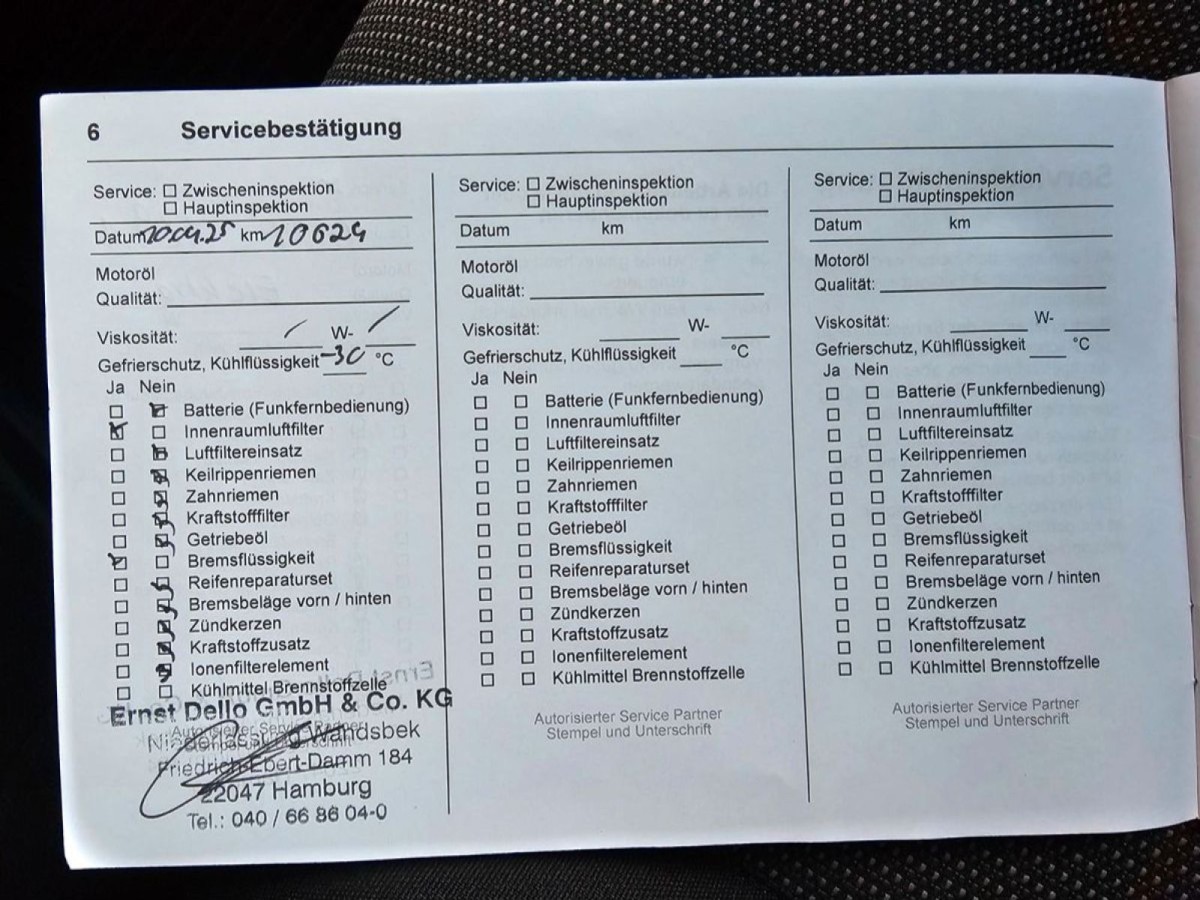 6 Servicebestätigung
Service: ☐ Zwischeninspektion
☐ Hauptinspektion
Datum 10.04.25 km 10624
Motoröl
Qualität:
Viskosität: / W- /
Gefrierschutz, Kühlflüssigkeit -30 °C
Ja Nein
☐ ☒ Batterie (Funkfernbedienung)
☒ ☐ Innenraumluftfilter
☐ ☒ Luftfiltereinsatz
☐ ☒ Keilrippenriemen
☐ ☒ Zahnriemen
☐ ☒ Kraftstofffilter
☐ ☒ Getriebeöl
☒ ☐ Bremsflüssigkeit
☐ ☒ Reifenreparaturset
☐ ☒ Bremsbeläge vorn / hinten
☐ ☒ Zündkerzen
☐ ☒ Kraftstoffzusatz
☐ ☒ Ionenfilterelement
☐ ☐ Kühlmittel Brennstoffzelle
Ernst Dello GmbH & Co. KG
Autorisierter Service Partner
Niederlassung Wandsbek
Stempel und Unterschrift
Friedrich-Ebert-Damm 184
22047 Hamburg
Tel.: 040 / 66 86 04-0
Service: ☐ Zwischeninspektion
☐ Hauptinspektion
Datum km
Motoröl
Qualität:
Viskosität: W-
Gefrierschutz, Kühlflüssigkeit °C
Ja Nein
☐ ☐ Batterie (Funkfernbedienung)
☐ ☐ Innenraumluftfilter
☐ ☐ Luftfiltereinsatz
☐ ☐ Keilrippenriemen
☐ ☐ Zahnriemen
☐ ☐ Kraftstofffilter
☐ ☐ Getriebeöl
☐ ☐ Bremsflüssigkeit
☐ ☐ Reifenreparaturset
☐ ☐ Bremsbeläge vorn / hinten
☐ ☐ Zündkerzen
☐ ☐ Kraftstoffzusatz
☐ ☐ Ionenfilterelement
☐ ☐ Kühlmittel Brennstoffzelle
Autorisierter Service Partner
Stempel und Unterschrift
Service: ☐ Zwischeninspektion
☐ Hauptinspektion
Datum km
Motoröl
Qualität:
Viskosität: W-
Gefrierschutz, Kühlflüssigkeit °C
Ja Nein
☐ ☐ Batterie (Funkfernbedienung)
☐ ☐ Innenraumluftfilter
☐ ☐ Luftfiltereinsatz
☐ ☐ Keilrippenriemen
☐ ☐ Zahnriemen
☐ ☐ Kraftstofffilter
☐ ☐ Getriebeöl
☐ ☐ Bremsflüssigkeit
☐ ☐ Reifenreparaturset
☐ ☐ Bremsbeläge vorn / hinten
☐ ☐ Zündkerzen
☐ ☐ Kraftstoffzusatz
☐ ☐ Ionenfilterelement
☐ ☐ Kühlmittel Brennstoffzelle
Autorisierter Service Partner
Stempel und Unterschrift